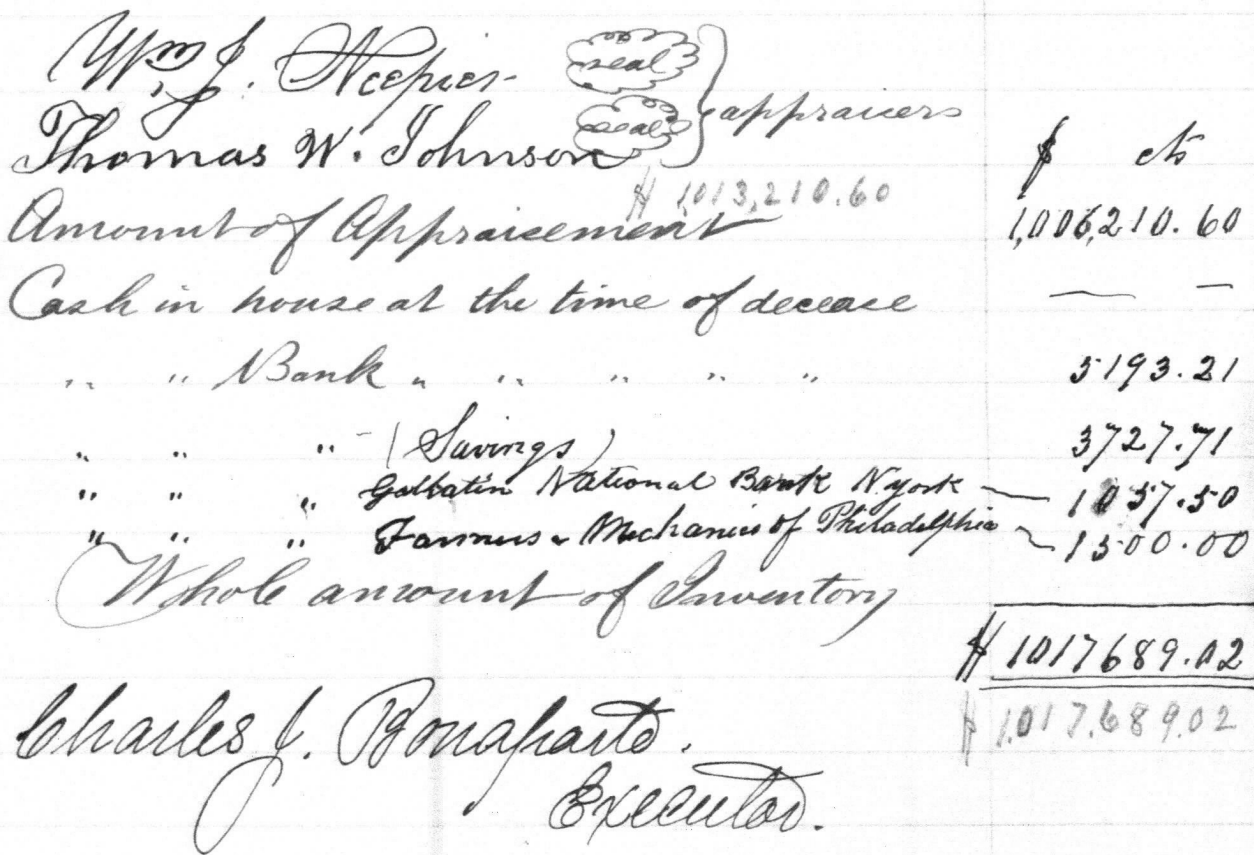 Wm J. seal
Thomas W. Johnson seal } appraicers
$ 1,013,210.60 $ cts
Amount of Appraicement 1,006,210.60
Cash in house at the time of decease — —
" " Bank " " " " " 5193.21
" " " - (Savings) 3727.71
" " " Gallatin National Bank N york — 1057.50
" " " Farmers & Mechanics of Philadelphia — 1500.00
Whole amount of Inventory
$ 1017689.02
$ 1,017,689.02
Charles J. Bonaparte.
Executor.